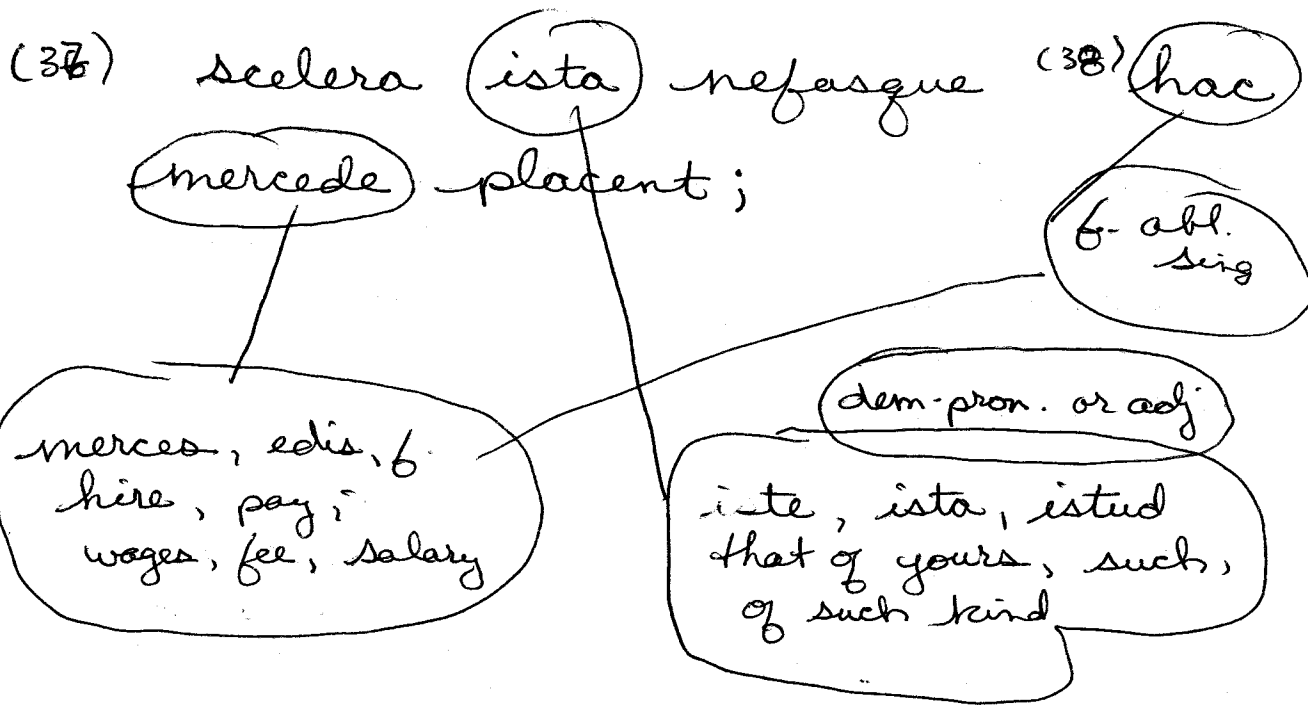 (37) scelera ista nefasque (38) hac
mercede placent;
f. abl.
sing
dem. pron. or adj
merces, edis, f.
hire, pay;
wages, fee, salary
iste, ista, istud
that of yours, such,
of such kind